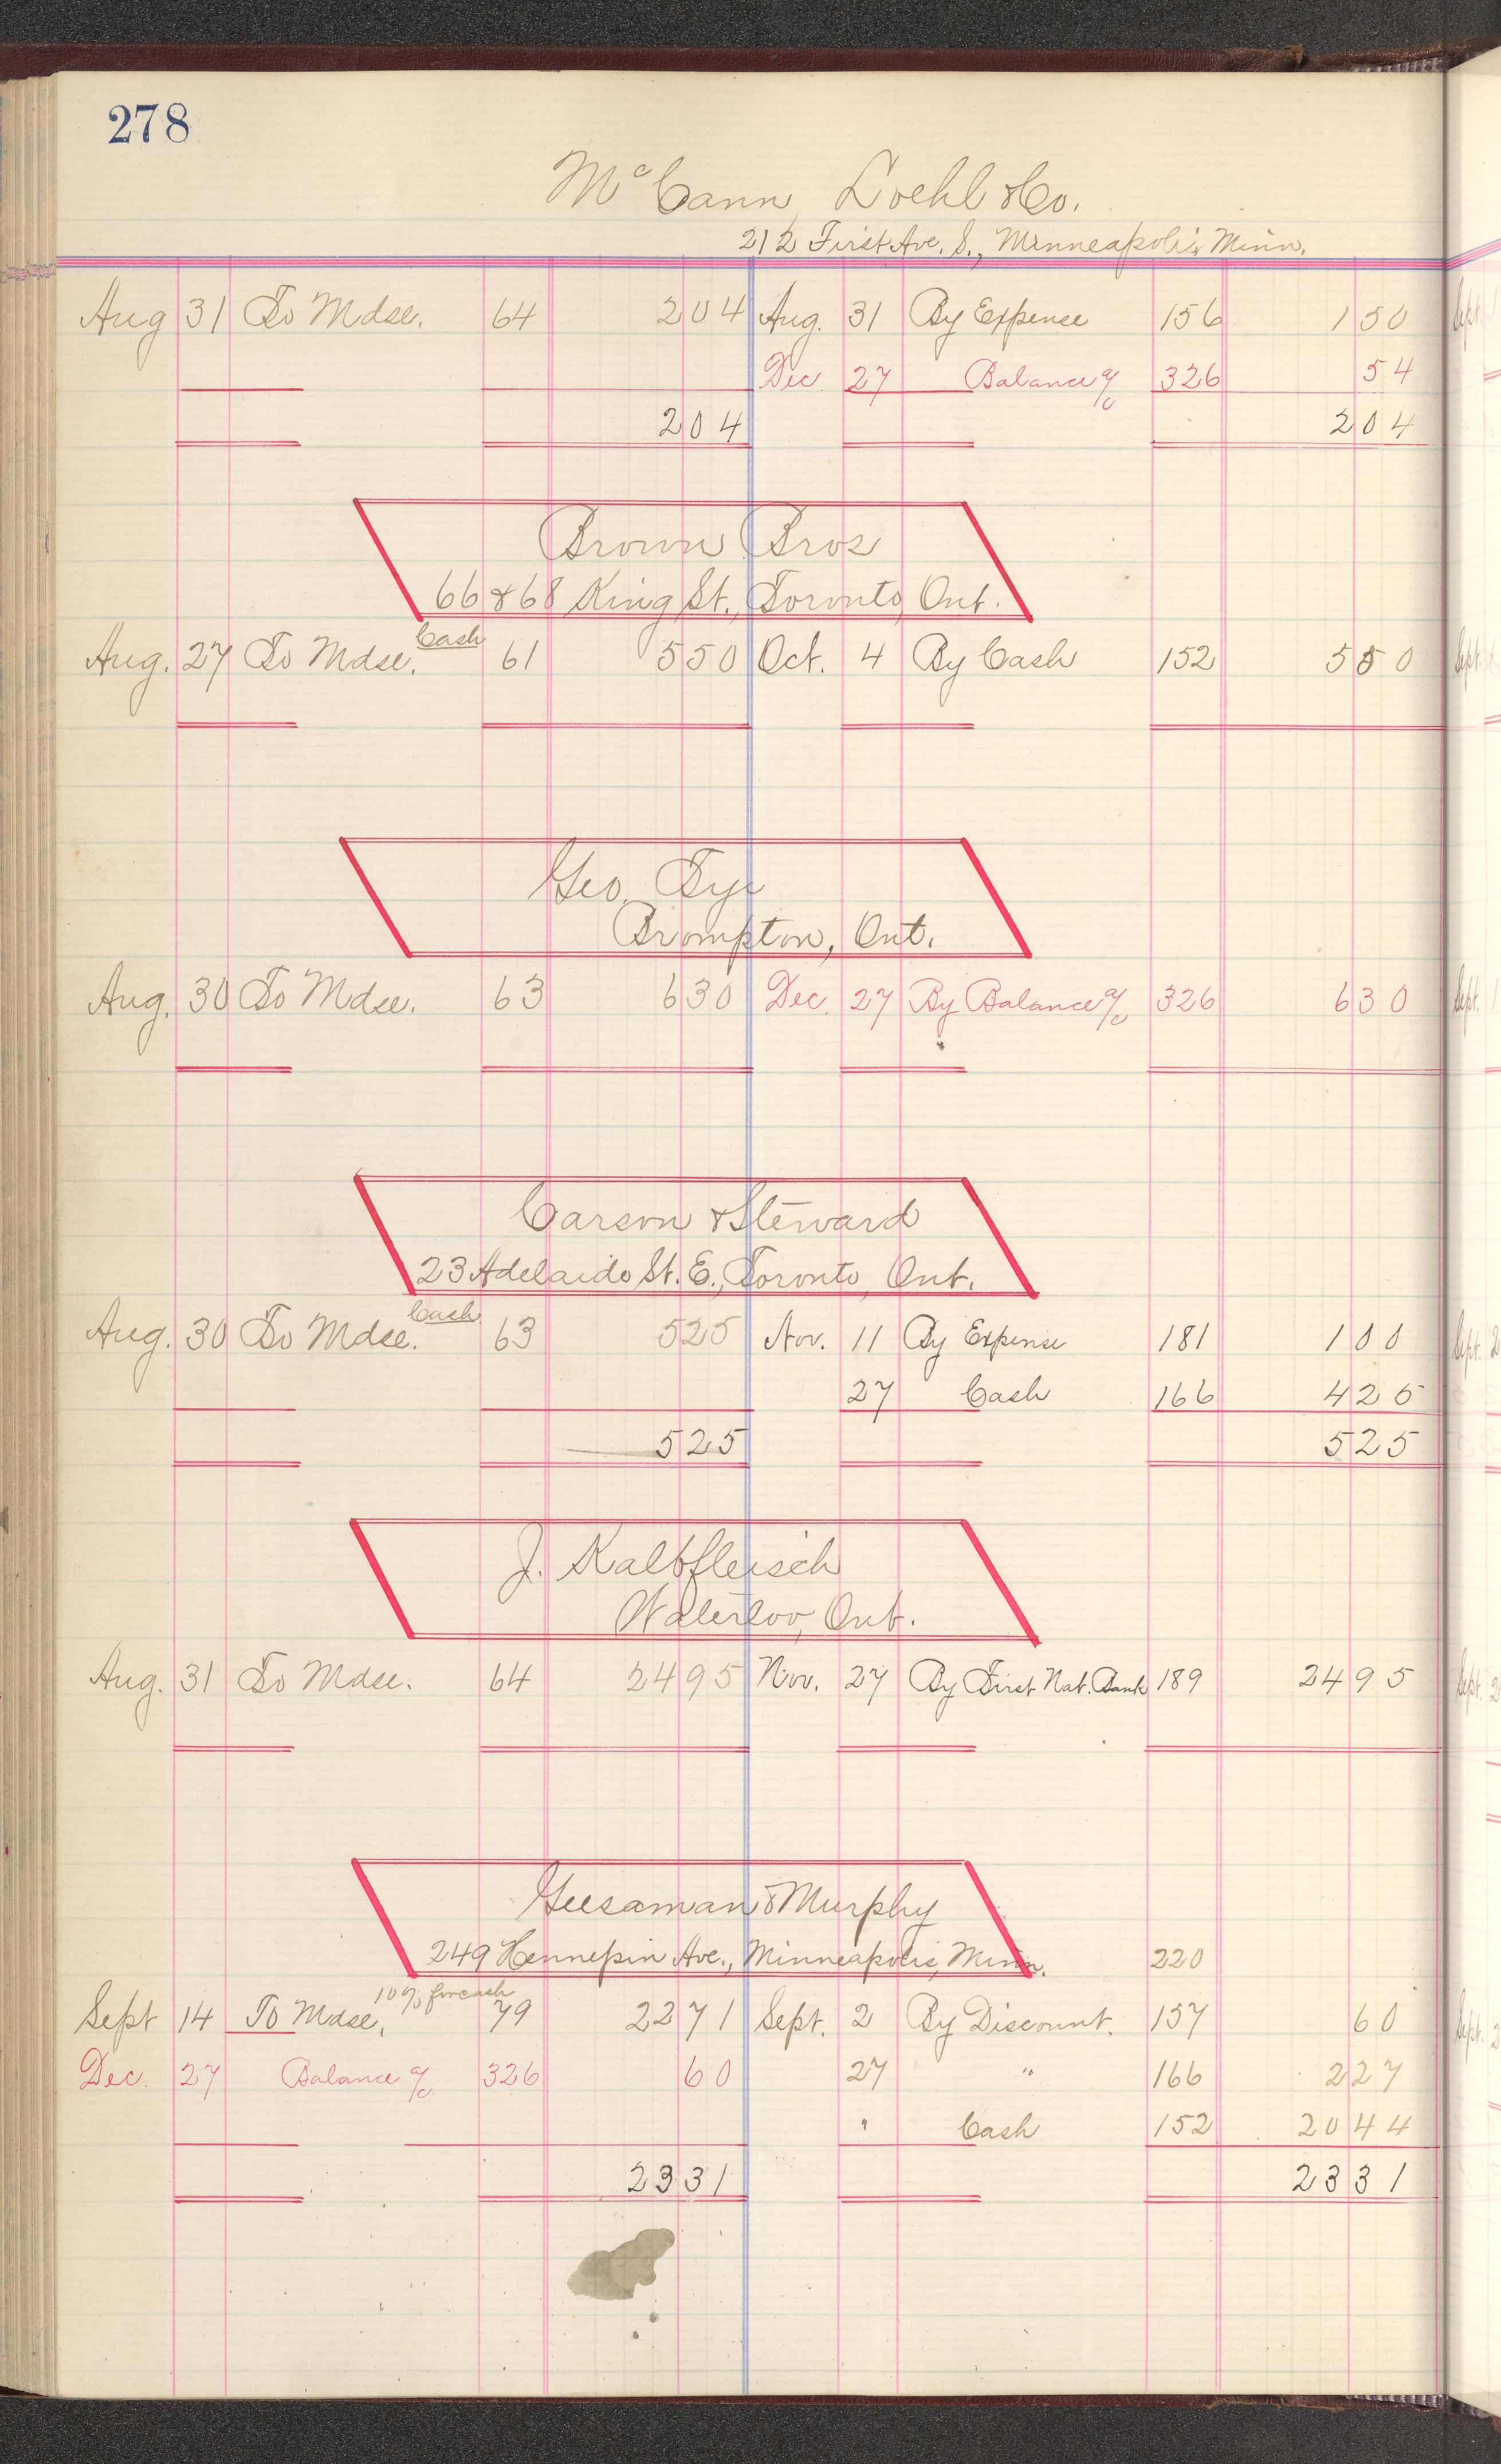 278
McCann, Loehl & Co.
212 First Ave. S., Minneapolis, Minn.
Aug 31 To Mdse. 64 204 Aug. 31 By Expense 156 150
Dec 27 Balance a/c 326 54
204 204
Brown Bros
66 & 68 King St., Toronto, Ont.
Cash
Aug. 27 To Mdse. 61 550 Oct. 4 By Cash 152 550
Geo. Tye
Brompton, Ont.
Aug. 30 To Mdse. 63 630 Dec. 27 By Balance a/c 326 630
Carson & Steward
23 Adelaide St. E., Toronto, Ont.
Cash
Aug. 30 To Mdse. 63 525 Nov. 11 By Expense 181 100
27 Cash 166 425
525 525
J. Kalbfleisch
Waterloo, Ont.
Aug. 31 To Mdse. 64 2495 Nov. 27 By First Nat. Bank 189 2495
Geesaman & Murphy
249 Hennepin Ave., Minneapolis, Minn. 220
10% for cash
Sept 14 To Mdse. 79 2271 Sept. 2 By Discount. 157 60
Dec. 27 Balance a/c 326 60 27 " 166 227
" Cash 152 2044
2331 2331